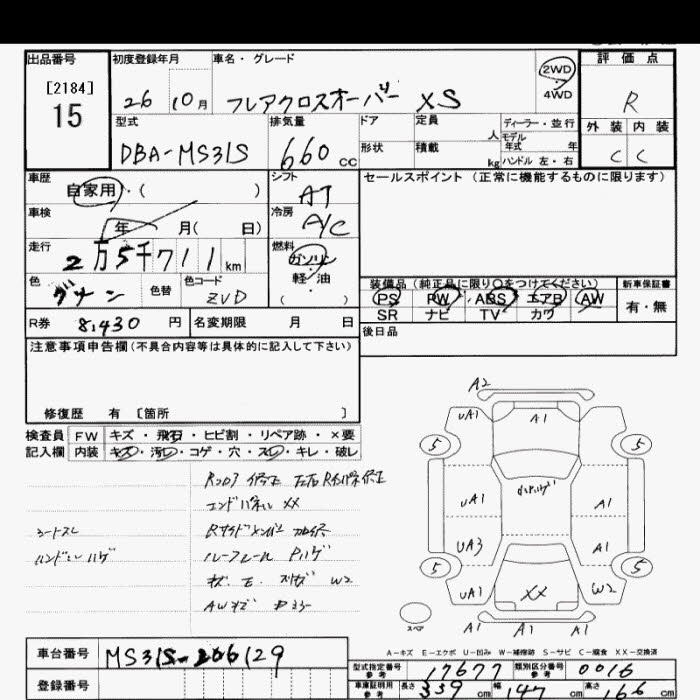 出品番号 初度登録年月 車名・グレード 評価点
[2184] 2WD
15 26 10月 フレアクロスオーバー XS 4WD R
型式 排気量 ドア 定員 人 ディーラー・並行 外装 内装
モデル年式 年
DBA-MS31S 660cc 形状 積載 kg ハンドル 左・右 C C
車歴 シフト セールスポイント(正常に機能するものに限ります)
自家用・( ) AT
車検 冷房
年 月( 日) A/C
走行 燃料
2万5千711km ガソリン
色 色替 色コード 軽・油 装備品(純正品に限り○をつけてください) 新車保証書
グリーン ZVD ( ) PS PW ABS エアB AW 有・無
SR ナビ TV カワ
R券 8,430円 名変期限 月 日 後日品
注意事項申告欄(不具合内容等は具体的に記入して下さい)
修復歴 有 〔箇所 〕
検査員 FW キズ・飛石・ヒビ割・リペア跡・×要
記入欄 内装 キズ・汚レ・コゲ・穴・スレ・キレ・破レ
Rフロア 修正
エンドパネル XX
シートスレ Rサイドメンバー
ハンドルハゲ ルーフレール Pハゲ
W2
AWキズ
A2
UA1 A1
5 5
UA1 A1
UA3 A1
5 5
UA1 XX W2
スペア A1 A1 A1
A-キズ E-エクボ U-凹み W-補修跡 S-サビ C-腐食 XX-交換済
車台番号 MS31S-206129
登録番号
型式指定番号 参考 17677 類別区分番号 参考 0016
車庫証明用 参考 長さ 339cm 幅 147cm 高さ 166cm